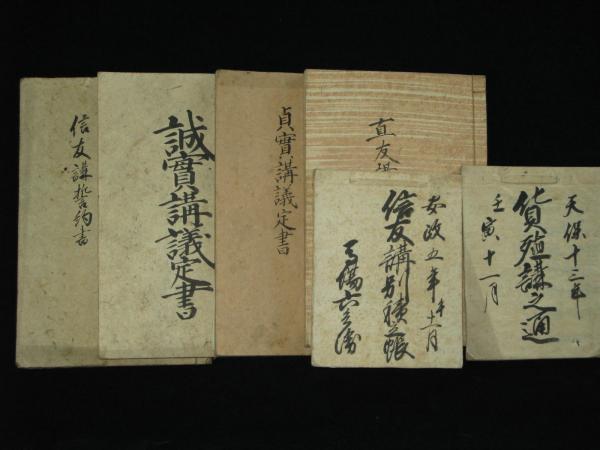 信友講誓約書
誠實講議定書
貞實講議定書
直友講
安政五年
十一月
信友講別積之帳
天保十三年
貨殖講之通
壬寅十一月